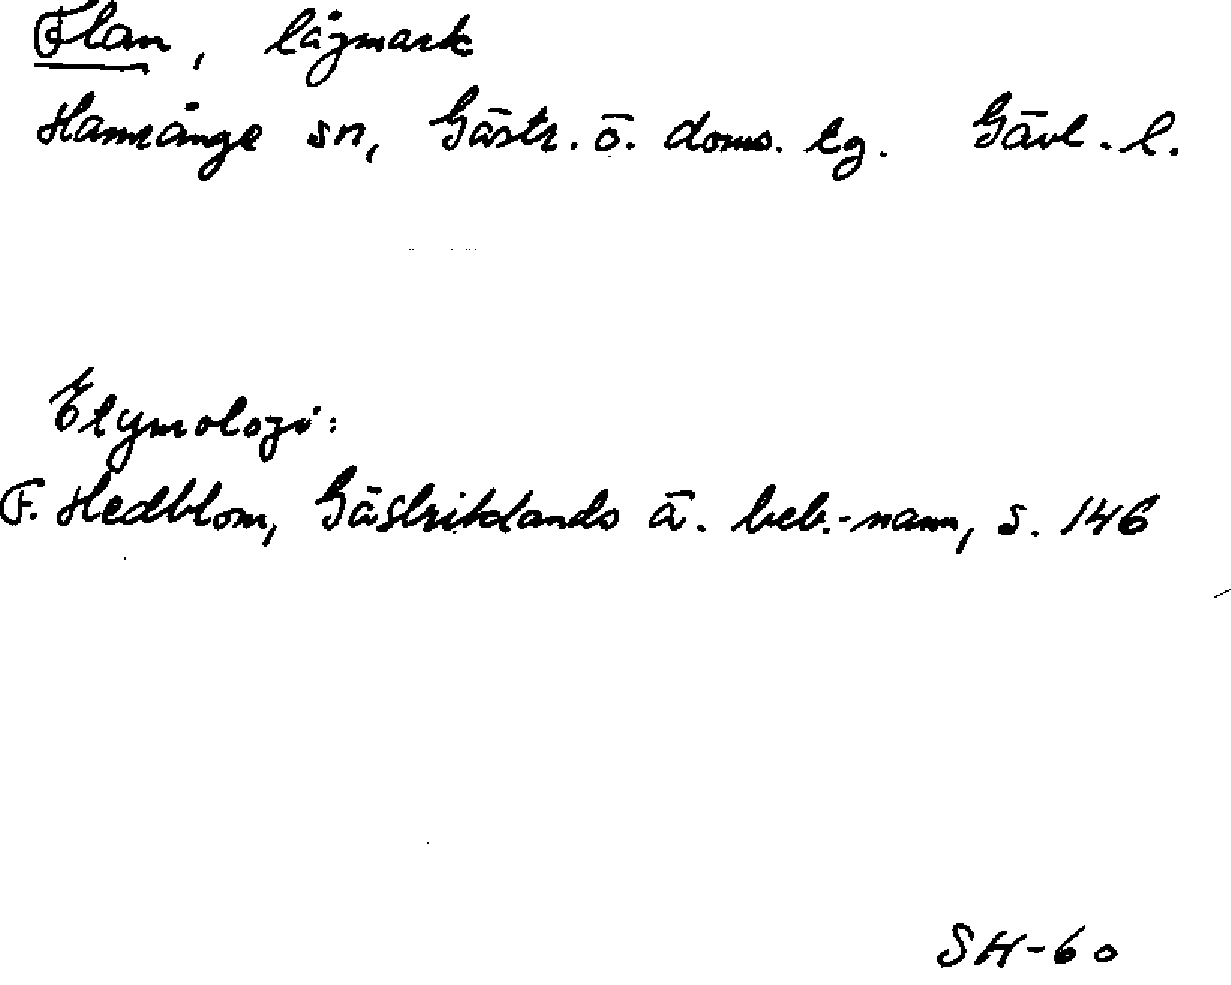 Flan, lågmark
Hamrånge sn, Gästr. ö. doms. tg. Gävl. l.
Etymologi:
F. Hedblom, Gästriklands ä. beb.-namn, s. 146
SH-60